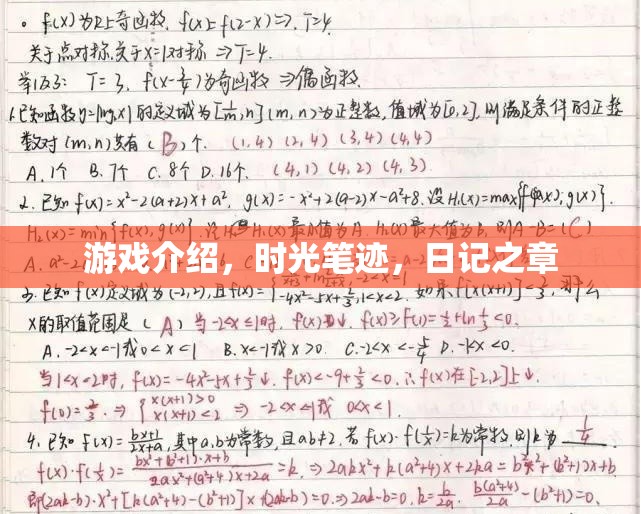 。f(x)为R上奇函数, f(x)=f(2-x)⇒T=4.
关于点对称,关于x=1对称 ⇒T=4.
T=3, f(x-3/4)为奇函数 ⇒偶函数.
1.已知函数y=|log₂x|的定义域为[1/m,n](m,n为正整数,值域为[0,2],则满足条件的正整
数对(m,n)共有(B)个. (1,4)(2,4)(3,4)(4,4)
A.1个 B.7个 C.8个 D.16个. (4,1)(4,2)(4,3)
2.已知f(x)=x²-2(a+2)x+a², g(x)=-x²+2(a-2)x-a²+8.设H₁(x)=max{f(x),g(x)}.
H₂(x)=min{f(x),g(x)}.
游戏介绍，时光笔迹，日记之章
3.已知f(x)定义域为(-2,2),且f(x)= -4x²-5x+2/3,1<x<2. 如果f[x(x+1)]<2/3,
x的取值范围是(A) 当-2<x≤1时,
A.-2<x<-1或0<x<1 B.x<-1或x>0. C.-2<x<-5/4 D.-1<x<0.
当1<x<2时, f(x)=-4x²-5x+2/3↓. f(x)<-9+2/3<0.∴f(x)在[-2,2]上↓.
f(0)=2/3.⇒{x(x+1)>0 x(x+1)<2 ⇒ -2<x<-1或 0<x<1.
4.已知f(x)=bx+1/2x+a,其中a,b为常数,且ab≠2.若f(x)·f(1/x)=k为常数,则k为 1/4
f(x)·f(1/x)=bx²+(b²+1)·x+b/2ax²+(a²+4)x+2a=k.⇒2akx²+k(a²+4)x+2ka=bx²+(b²+1)x+b.
即(2ak-b)·x²+[k(a²+4)-(b²+1)]x+(2ak-b)=0.⇒2ak-b=0.k=b/2a. b(a²+4)/2a-(b²+1)=0.